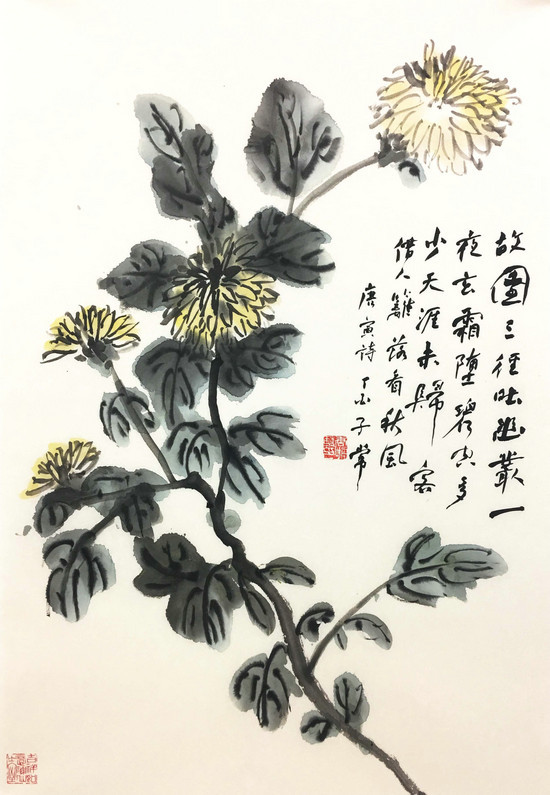 故園三徑吐幽叢一
夜玄霜堕碧空多
少天涯未歸客
借人籬落看秋风
唐寅詩 丁酉子常